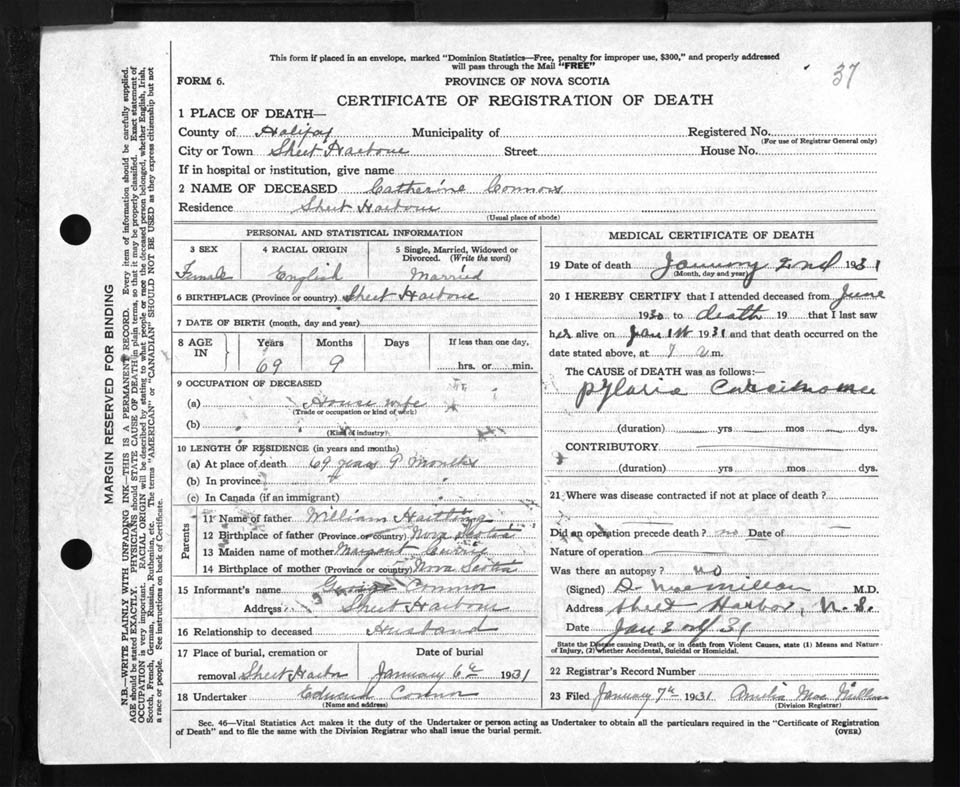 This form if placed in an envelope, marked "Dominion Statistics—Free, penalty for improper use, $300," and properly addressed
will pass through the Mail "FREE"
37
FORM 6.
PROVINCE OF NOVA SCOTIA
CERTIFICATE OF REGISTRATION OF DEATH
1 PLACE OF DEATH—
County of Halifax Municipality of Registered No.
(For use of Registrar General only)
City or Town Sheet Harbour Street House No.
If in hospital or institution, give name
2 NAME OF DECEASED Catherine Connors
Residence Sheet Harbour
(Usual place of abode)
PERSONAL AND STATISTICAL INFORMATION
3 SEX 4 RACIAL ORIGIN 5 Single, Married, Widowed or
Divorced. (Write the word)
Female English Married
6 BIRTHPLACE (Province or country) Sheet Harbour
7 DATE OF BIRTH (month, day and year)
8 AGE IN Years Months Days If less than one day,
69 9 hrs. or min.
9 OCCUPATION OF DECEASED
(a) House wife
(Trade or occupation or kind of work)
(b)
(Kind of industry)
10 LENGTH OF RESIDENCE (in years and months)
(a) At place of death 69 years 9 Months
(b) In province
(c) In Canada (if an immigrant)
Parents
11 Name of father William Hartling
12 Birthplace of father (Province or country) Nova Scotia
13 Maiden name of mother Margaret Currie
14 Birthplace of mother (Province or country) Nova Scotia
15 Informant's name George Connor
Address Sheet Harbour
16 Relationship to deceased Husband
17 Place of burial, cremation or Date of burial
removal Sheet Harbor January 6th 1931
18 Undertaker Edward Connor
(Name and address)
MEDICAL CERTIFICATE OF DEATH
19 Date of death January 2nd 1931
(Month, day and year)
20 I HEREBY CERTIFY that I attended deceased from June
1930 to death 19 that I last saw
her alive on Jan 1st 1931 and that death occurred on
date stated above, at 7 a m.
The CAUSE of DEATH was as follows:—
Pyloric Carcinoma
(duration) yrs mos dys.
CONTRIBUTORY
(duration) yrs mos dys.
21 Where was disease contracted if not at place of death?
Did an operation precede death? no Date of
Nature of operation
Was there an autopsy? no
(Signed) D. MacMillan M.D.
Address Sheet Harbor, N.S.
Date Jan 3rd 31
State the Disease causing Death, or in death from Violent Causes, state (1) Means and Nature
of Injury, (2) whether Accidental, Suicidal or Homicidal.
22 Registrar's Record Number
23 Filed January 7th 1931 Amelia MacMillan
(Division Registrar)
Sec. 46—Vital Statistics Act makes it the duty of the Undertaker or person acting as Undertaker to obtain all the particulars required in the "Certificate of Registration
of Death" and to file the same with the Division Registrar who shall issue the burial permit.
(OVER)
MARGIN RESERVED FOR BINDING
N.B.—WRITE PLAINLY WITH UNFADING INK—THIS IS A PERMANENT RECORD. Every item of information should be carefully supplied.
AGE should be stated EXACTLY. PHYSICIANS should STATE CAUSE OF DEATH in plain terms, so that it may be properly classified. Exact statement of
OCCUPATION is very important. RACIAL ORIGIN will be described by stating to what people or race the deceased person belonged, whether English, Irish,
Scotch, French, German, Russian, Ruthenian, etc. The terms "AMERICAN" or "CANADIAN" SHOULD NOT BE USED as they express citizenship but not
a race or people. See instructions on back of Certificate.